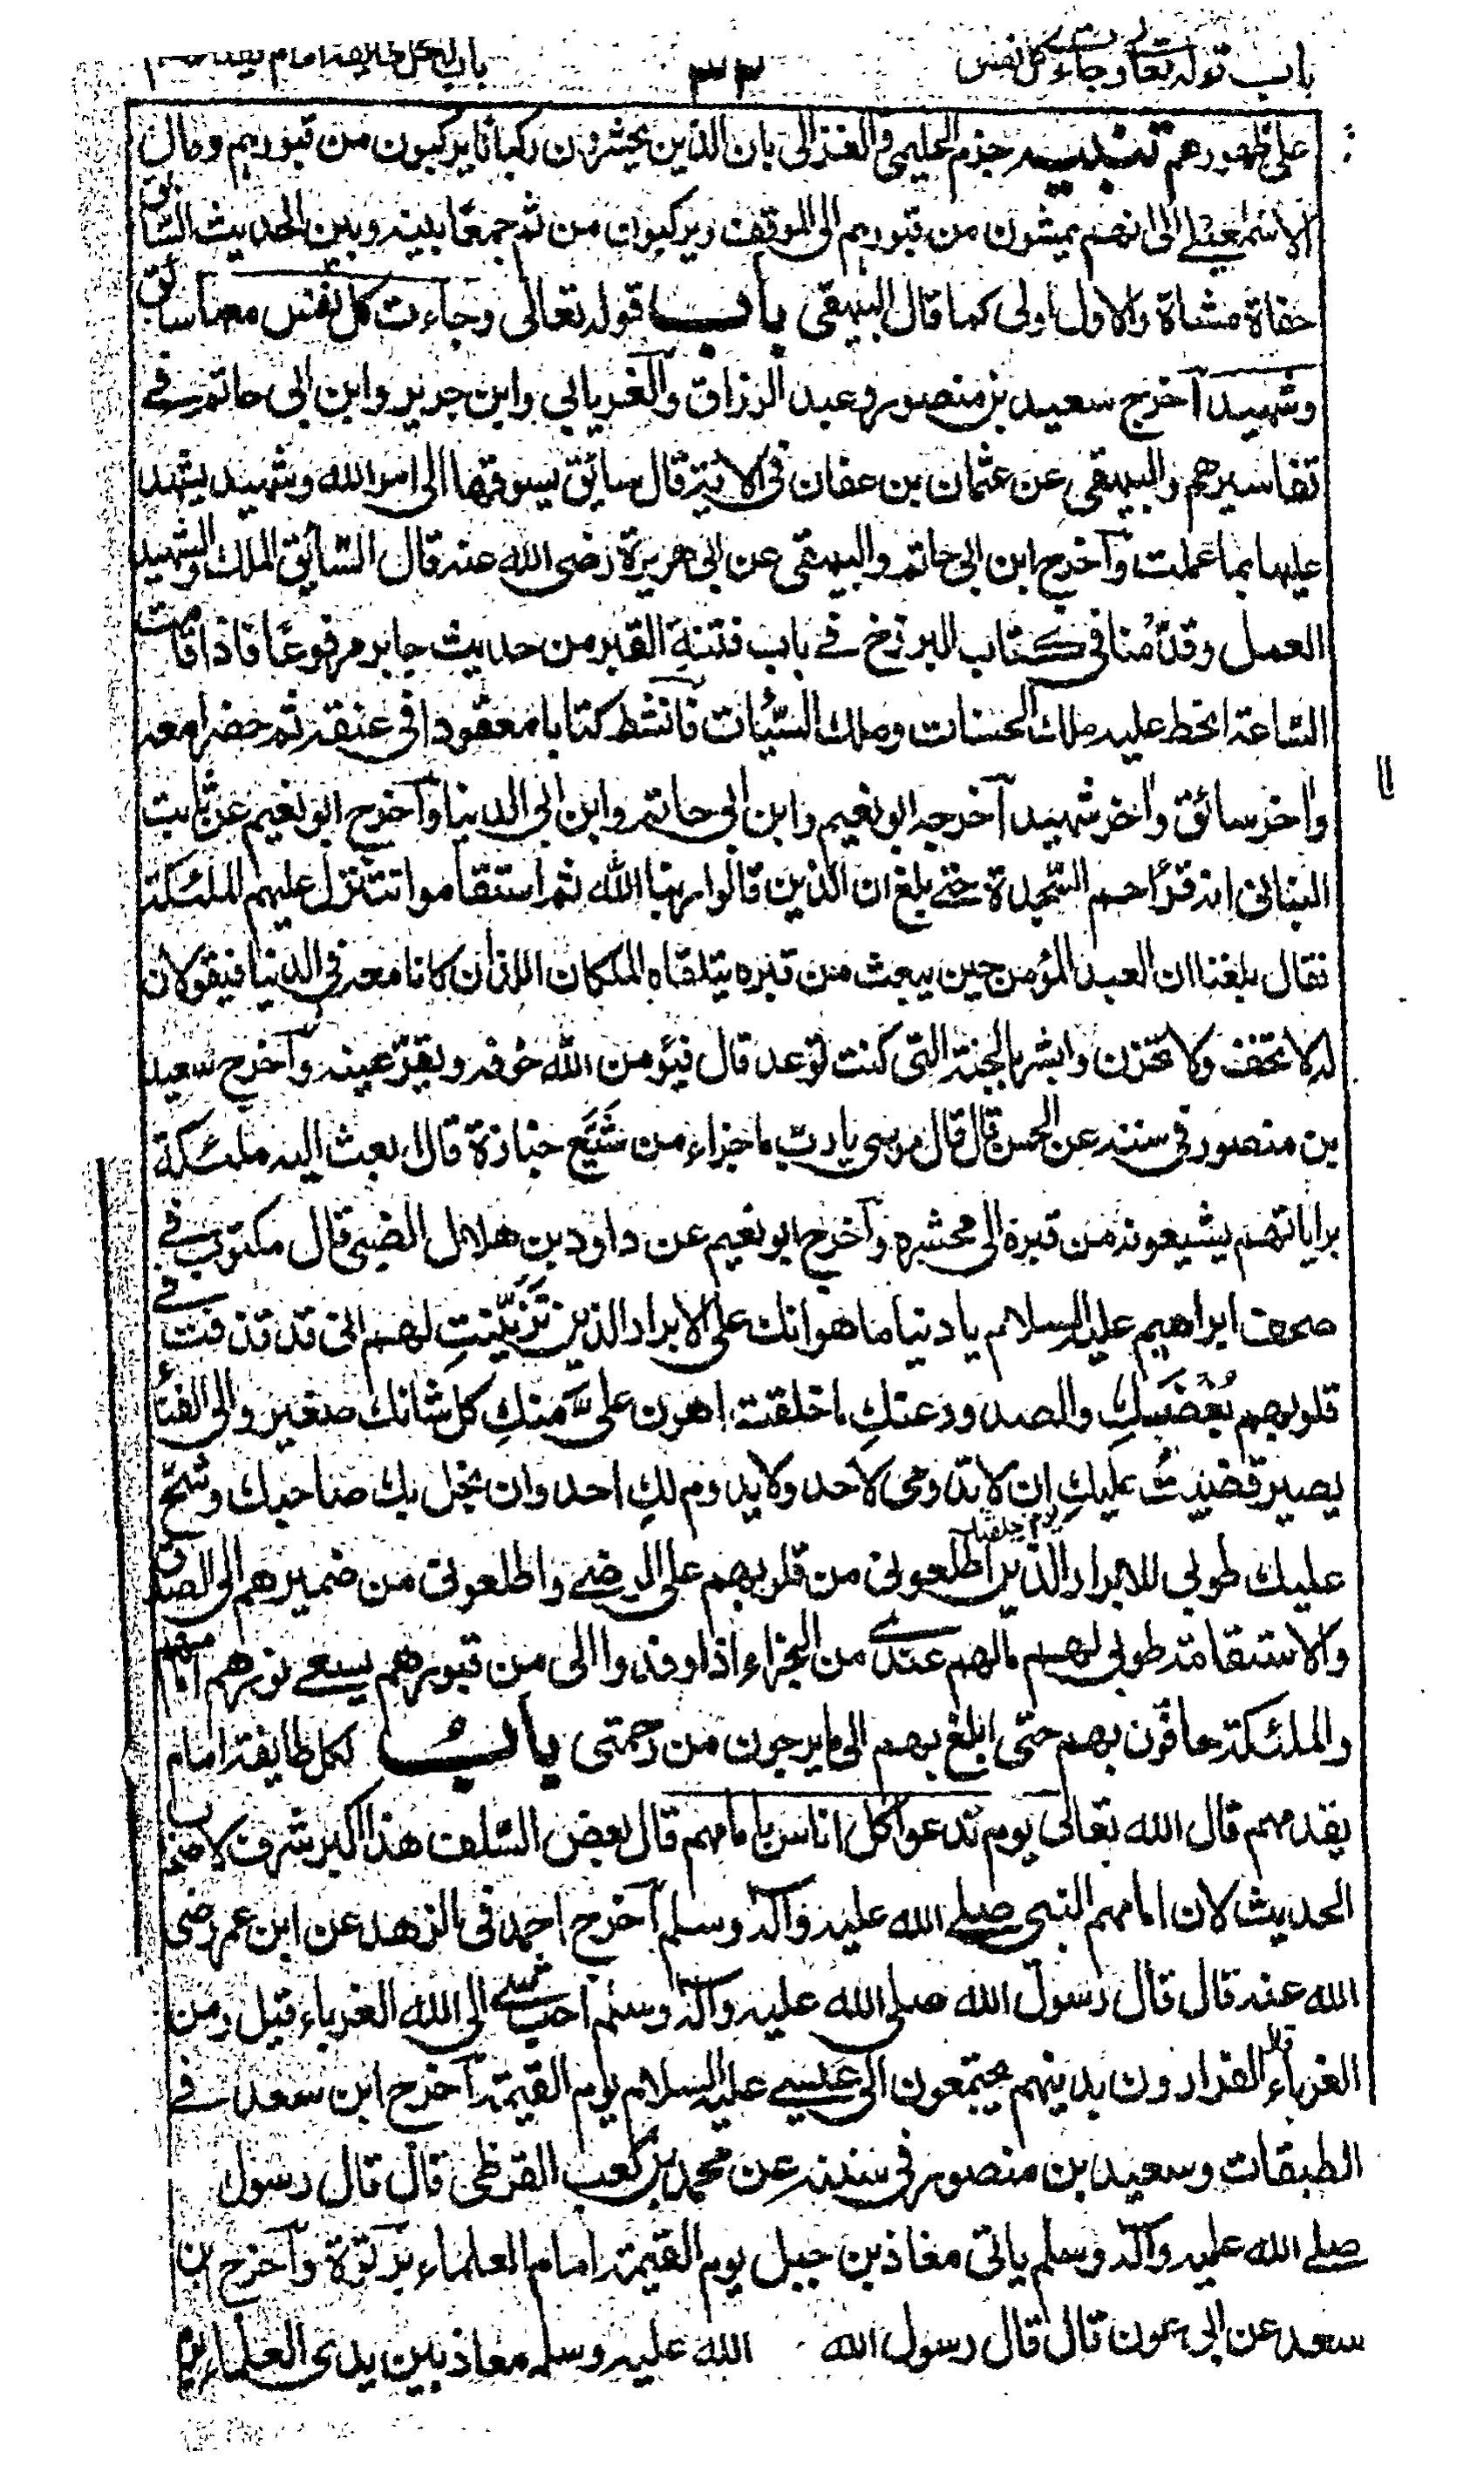 باب قوله تعالى وجاءت كل نفس ٣٣ باب لكل طايفة امام يقدمهم
على ظهورهم تنبيه جزم الحليمى والغزالى بان الذين يحشرون ركبانا يركبون من قبورهم وقال
الاسمعيلے الى انهم يمشون من قبورهم الى الموقف ويركبون من ثم جمعًا بينه وبين الحديث السّابق
حفاة مشاة والاول اولى كما قال البيهقى باب قوله تعالى وجاءت كل نفس معها سائق
وشهيد آخرج سعيد بن منصور وعبد الرزاق والفريابي وابن جرير وابن ابى حاتم فے
تفاسيرهم والبيهقى عن عثمان بن عفان فى الاية قال سائق يسوقها الى امر الله وشهيد يشهد
عليها بما عملت وآخرج ابن ابى حاتم والبيهقى عن ابى هريرة رضى الله عنه قال السّائق الملك والشهيد
العمل وقدّمنا فى كتاب البرزخ فے باب فتنة القبر من حديث جابر مرفوعًا فاذا قامت
السّاعة انحط عليه ملك الحسنات وملك السّيّات فانشط كتابا معقودا فى عنقه ثم حضرا معه
واحد سائق واخر شهيد آخرجه ابو نعيم وابن ابى حاتم وابن ابى الدنيا وآخرج ابو نعيم عن ثابت
البنانى انه قرأ حم السّجدة حتے بلغ ان الذين قالوا ربنا الله ثم استقاموا تتنزل عليهم الملئكة
فقال بلغنا ان العبد المؤمن حين يبعث من قبره يتلقاه الملكان اللذان كانا معه فى الدنيا فيقولان
له لا تخف ولا تحزن وابشر بالجنة التى كنت توعد قال فيؤمن الله خوفه ويقرّ عينه وآخرج سعيد
بن منصور فى سننه عن الحسن قال قال موسى يا ربّ ما جزاء من شَيَّع جنازة قال ابعث اليه ملئكة
براياتهم يشيعونه من قبره الى محشره وآخرج ابو نعيم عن داود بن هلال الضبى قال مكتوب فے
صحف ابراهيم عليه السلام يا دنيا ما هوانك على الابرار الذين تَزَيَّنتِ لهم انى قد قذفت فے
قلوبهم بُغضَكِ والصد ودعنكِ ما خلقت اهون علىَّ منكِ كل شانك صغير والى الفناء
يصير قضيت عليكِ ان لا تدومى لاحد ولا يدوم لكِ احد وان بخل بك صاحبك وشحّ
عليك طوبى للابرار الذين اطلعونى من قلوبهم على الرضے واطلعونى من ضميرهم الى الصدق
والاستقامة طوبى لهم مالهم عندى من الجزاء اذا وفدوا الى من قبورهم يسعے نورهم امامهم
والملئكة حافّون بهم حتى ابلغ بهم الى ما يرجون من رحمتى باب لكل طايفة امام
يقدمهم قال الله تعالى يوم ندعوا كل اناس بامامهم قال بعض السّلف هذا اكبر شرف لاصحاب
الحديث لان امامهم النبى صلے الله عليه وآله وسلم آخرج احمد فى الزهد عن ابن عمر رضى
الله عنه قال قال رسول الله صلى الله عليه وآله وسلم احب شے الى الله الغرباء قيل ومن
الغرباء قال الفرارون بدينهم يجتمعون الى عيسے عليه السلام يوم القيمة آخرج ابن سعد فے
الطبقات وسعيد بن منصور فى سننه عن محمد بن كعب القرظى قال قال رسول
صلے الله عليه وآله وسلم ياتى معاذ بن جبل يوم القيمة امام العلماء برتوة وآخرج ابن
سعد عن ابى عون قال قال رسول الله الله عليه وسلم معاذ بين يدى العلماء